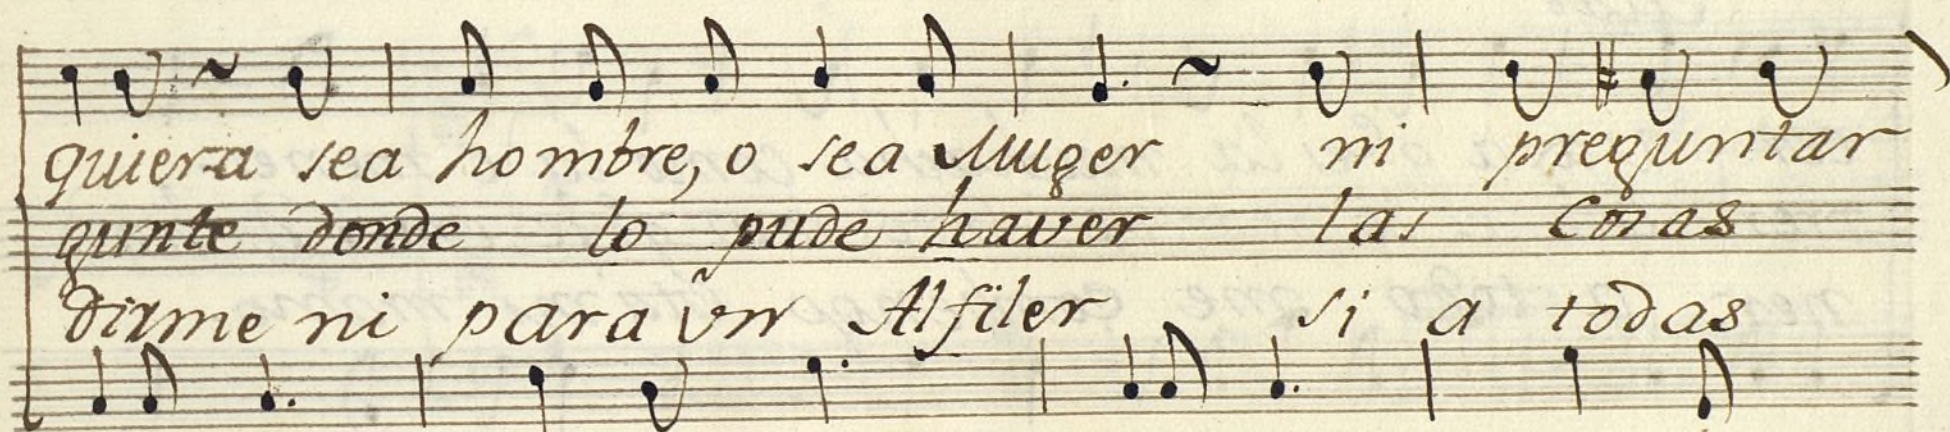 quiera sea hombre, o sea Muger ni preguntar
gunte donde lo pude haver las cosas
dirme ni para vn Alfiler si a todas